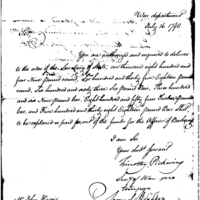 War department
July 16. 1795.
Sir,
You are authorized and required to deliver
to the order of the Secretary of State, one thousand eight hundred and
four Nine pound round Shot, and thirty four Eighteen pounds
round, Six hundred and sixty three Six pound Bar, Three hundred
and six Nine pound Bar, Eight hundred and fifty four Twelve pound
Bar, and three hundred and thirty eight Eighteen pound Bar Shot
to be replaced or paid for out of the funds for the Affairs of Barbary
I am Sir
Your obed't servant
Timothy Pickering
Secy of War
Samuel Hodgdon
Mr John Harris